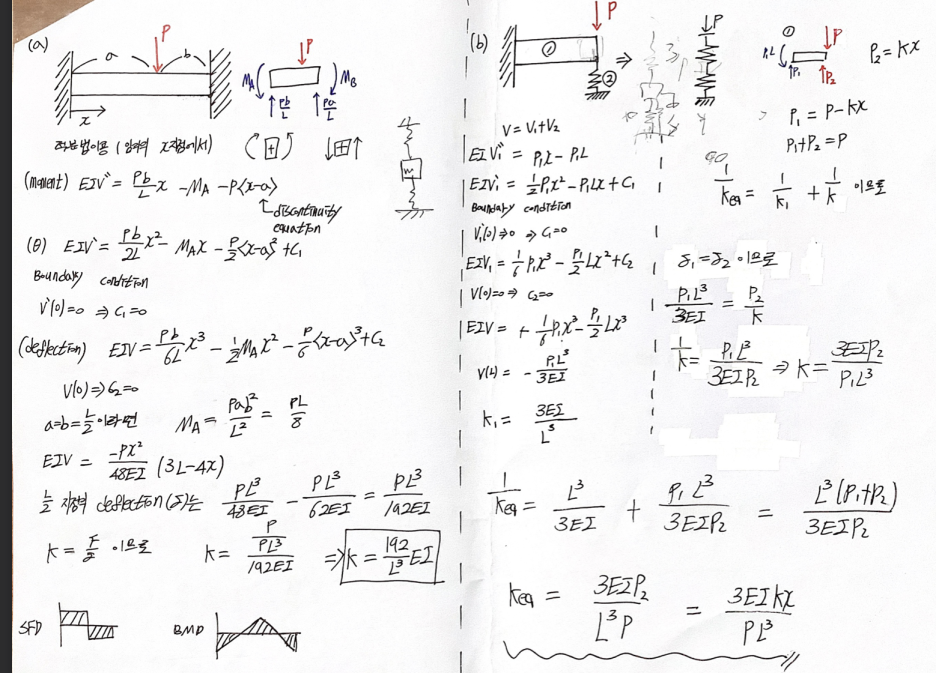 (a)
P
a
b
x
P
M_A
M_B
Pb/L
Pa/L
(moment) EIV'' = Pb/L x - M_A - P<x-a>
discontinuity
equation
(θ) EIV' = Pb/2L x² - M_A x - P/2 <x-a>² + C₁
Boundary condition
V'(0)=0 ⇒ C₁=0
(deflection) EIV = Pb/6L x³ - 1/2 M_A x² - P/6 <x-a>³ + C₂
V(0) ⇒ C₂=0
a=b=L/2 이라면 M_A = Pab²/L² = PL/8
EIV = -Px²/48EI (3L-4x)
L/2 지점의 deflection(δ)는 PL³/48EI - PL³/62EI = PL³/192EI
k = F/x 이므로 k = P/(PL³/192EI) ⇒ k = 192/L³ EI
SFD
BMD
(b)
P
①
②
⇒
P
①
P
P₁L
P₁
P₂
P₂ = kx
V = V₁+V₂
P₁ = P-kx
P₁+P₂ = P
EIV₁'' = P₁x - P₁L
EIV₁' = 1/2 P₁x² - P₁Lx + C₁
Boundary condition
V₁'(0)⇒0 ⇒ C₁=0
EIV₁ = 1/6 P₁x³ - P₁/2 Lx² + C₂
V(0)=0 ⇒ C₂=0
EIV = + 1/6 P₁x³ - P₁/2 Lx³
V(L) = - P₁L³/3EI
k₁ = 3EI/L³
1/keq = 1/k₁ + 1/k 이므로
δ₁=δ₂ 이므로
P₁L³/3EI = P₂/k
1/k = P₁L³/3EIP₂ ⇒ k = 3EIP₂/P₁L³
1/keq = L³/3EI + P₁L³/3EIP₂ = L³(P₁+P₂)/3EIP₂
keq = 3EIP₂/L³P = 3EIkx/PL³